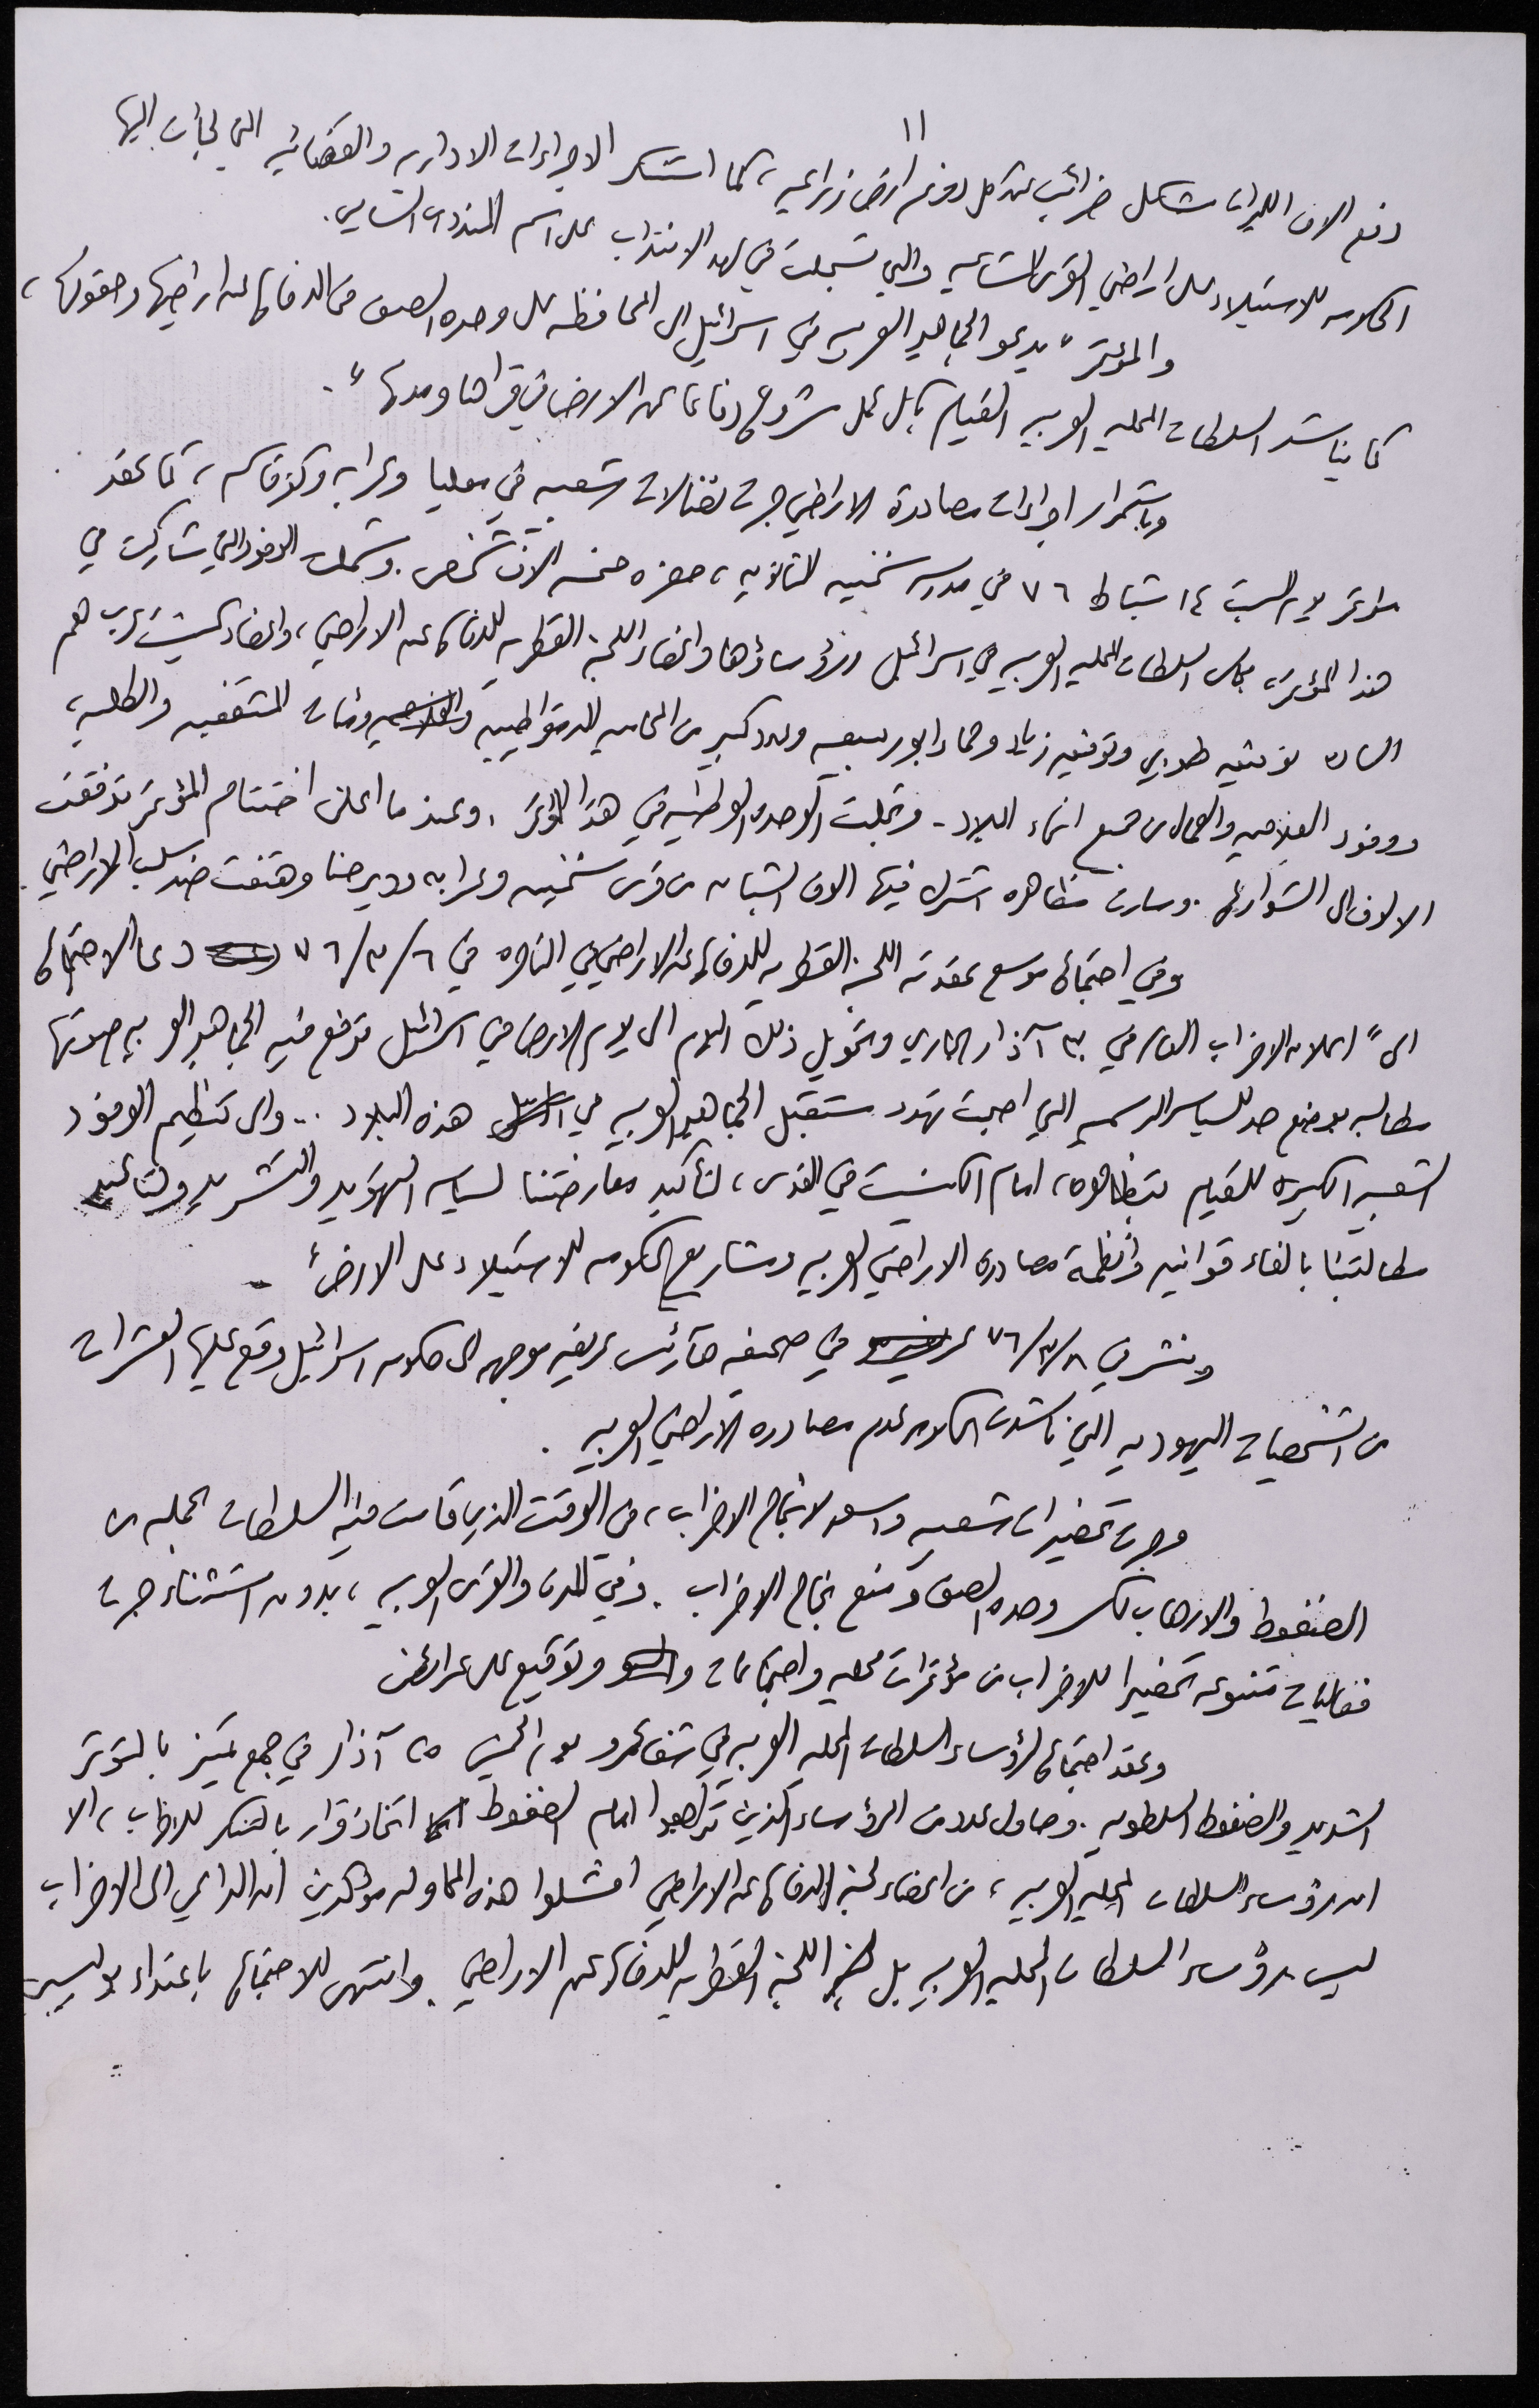 ١١
دفع الاف الليرات شكل ضرائب عن كل دونم ارض زراعيه، كما استنكر الاجراءات الاداريه والقضائيه التي لجأت اليها
الحكومه للاستيلاء على اراضي القرى المشاعيه والتي تسجلت في عهد الانتداب على اسم المندوب السامي.
والمؤتمر "يدعو الجماهير العربيه في اسرائيل الى المحافظه على وحده الصف في الدفاع عن اراضيها وحقوقها،
كما يناشد السلطات المحليه العربيه القيام بكل عمل مشروع دفاعا عن الارض في قراها ومدنها".
وباستمرار اجراءات مصادرة الاراضي جرت نضالات شعبيه في معليا وعرابه وكفر قاسم، كما عقد
مؤتمر يوم السبت ١٤ شباط ٧٦ في مدرسه سخنين الثانويه، حضره خمسه الاف شخص. وشملت الوفود التي شاركت في
هذا المؤتمر، مجالس السلطات المحليه العربيه في اسرائيل ورؤساؤها واعضاء اللجنه القطريه للدفاع عن الاراضي، واعضاء كنيست عرب هم
الساده توفيق طوبي وتوفيق زياد وحماد ابو ربيعه وعدد كبير من المحامين الديموقراطيين والفلاحين ومئات المثقفين والطلبه،
ووفود الفلاحين والعمال من جميع انحاء البلاد. وتجلت الوحده الوطنيه في هذا المؤتمر. وعندما اعلن اختتام المؤتمر تدفقت
الالوف الى الشوارع. وسارت مظاهره اشترك فيها الاف الشبان من قرى سخنين وعرابه ودير حنا وهتفت ضد سلب الاراضي.
وفي اجتماع موسع عقدته اللجنه القطريه للدفاع عن الاراضي في الناصره في ٧٦/٣/٦ دعا الاجتماع
الى "اعلان الاضراب العام في ٣٠ آذار الجاري وتحويل ذلك اليوم الى يوم الارض في اسرائيل ترفع فيه الجماهير العربيه صوتها
مطالبه بوضع حد للسياسه الرسميه التي اصبحت تهدد مستقبل الجماهير العربيه في هذه البلاد .. والى تنظيم الوفود
الشعبيه الكبيره للقيام بتظاهره، امام الكنيست في القدس، لتأكيد معارضتنا لسياسه التهويد والتشريد ولتأكيد
مطالبتنا بالغاء قوانين وأنظمة مصادره الاراضي العربيه ومشاريع الحكومه للاستيلاء على الارض".
ونشر في ٧٦/٣/٨ في صحيفه هآرتس عريضه موجهه الى حكومه اسرائيل وقع عليها العشرات
من الشخصيات اليهوديه التي ناشدت الحكومه عدم مصادره الاراضي العربيه.
وجرت تحضيرات شعبيه واسعه لانجاح الاضراب، في الوقت الذي قامت فيه السلطات بحمله من
الضغوط والارهاب لكسر وحده الصف ومنع نجاح الاضراب. وفي المدن والقرى العربيه، بدون استثناء جرت
فعاليات متنوعه تحضيرا للاضراب من مؤتمرات محليه واجتماعات وتوقيع على عرائض
وعقد اجتماع لرؤساء السلطات المحليه العربيه في شفاعمرو يوم الخميس ٢٥ آذار في جو تميز بالتوتر
الشديد والضغوط السلطويه. وحاول عدد من الرؤساء الذين تراجعوا امام الضغوط اتخاذ قرار بالتنكر للاضراب، الا
ان رؤساء السلطات المحليه العربيه، من اعضاء لجنه الدفاع عن الاراضي افشلوا هذه المحاوله مؤكدين ان الداعي الى الاضراب
ليس رؤساء السلطات المحليه العربيه بل اللجنه القطريه للدفاع عن الاراضي. وانتهى الاجتماع باعتداء بوليسي